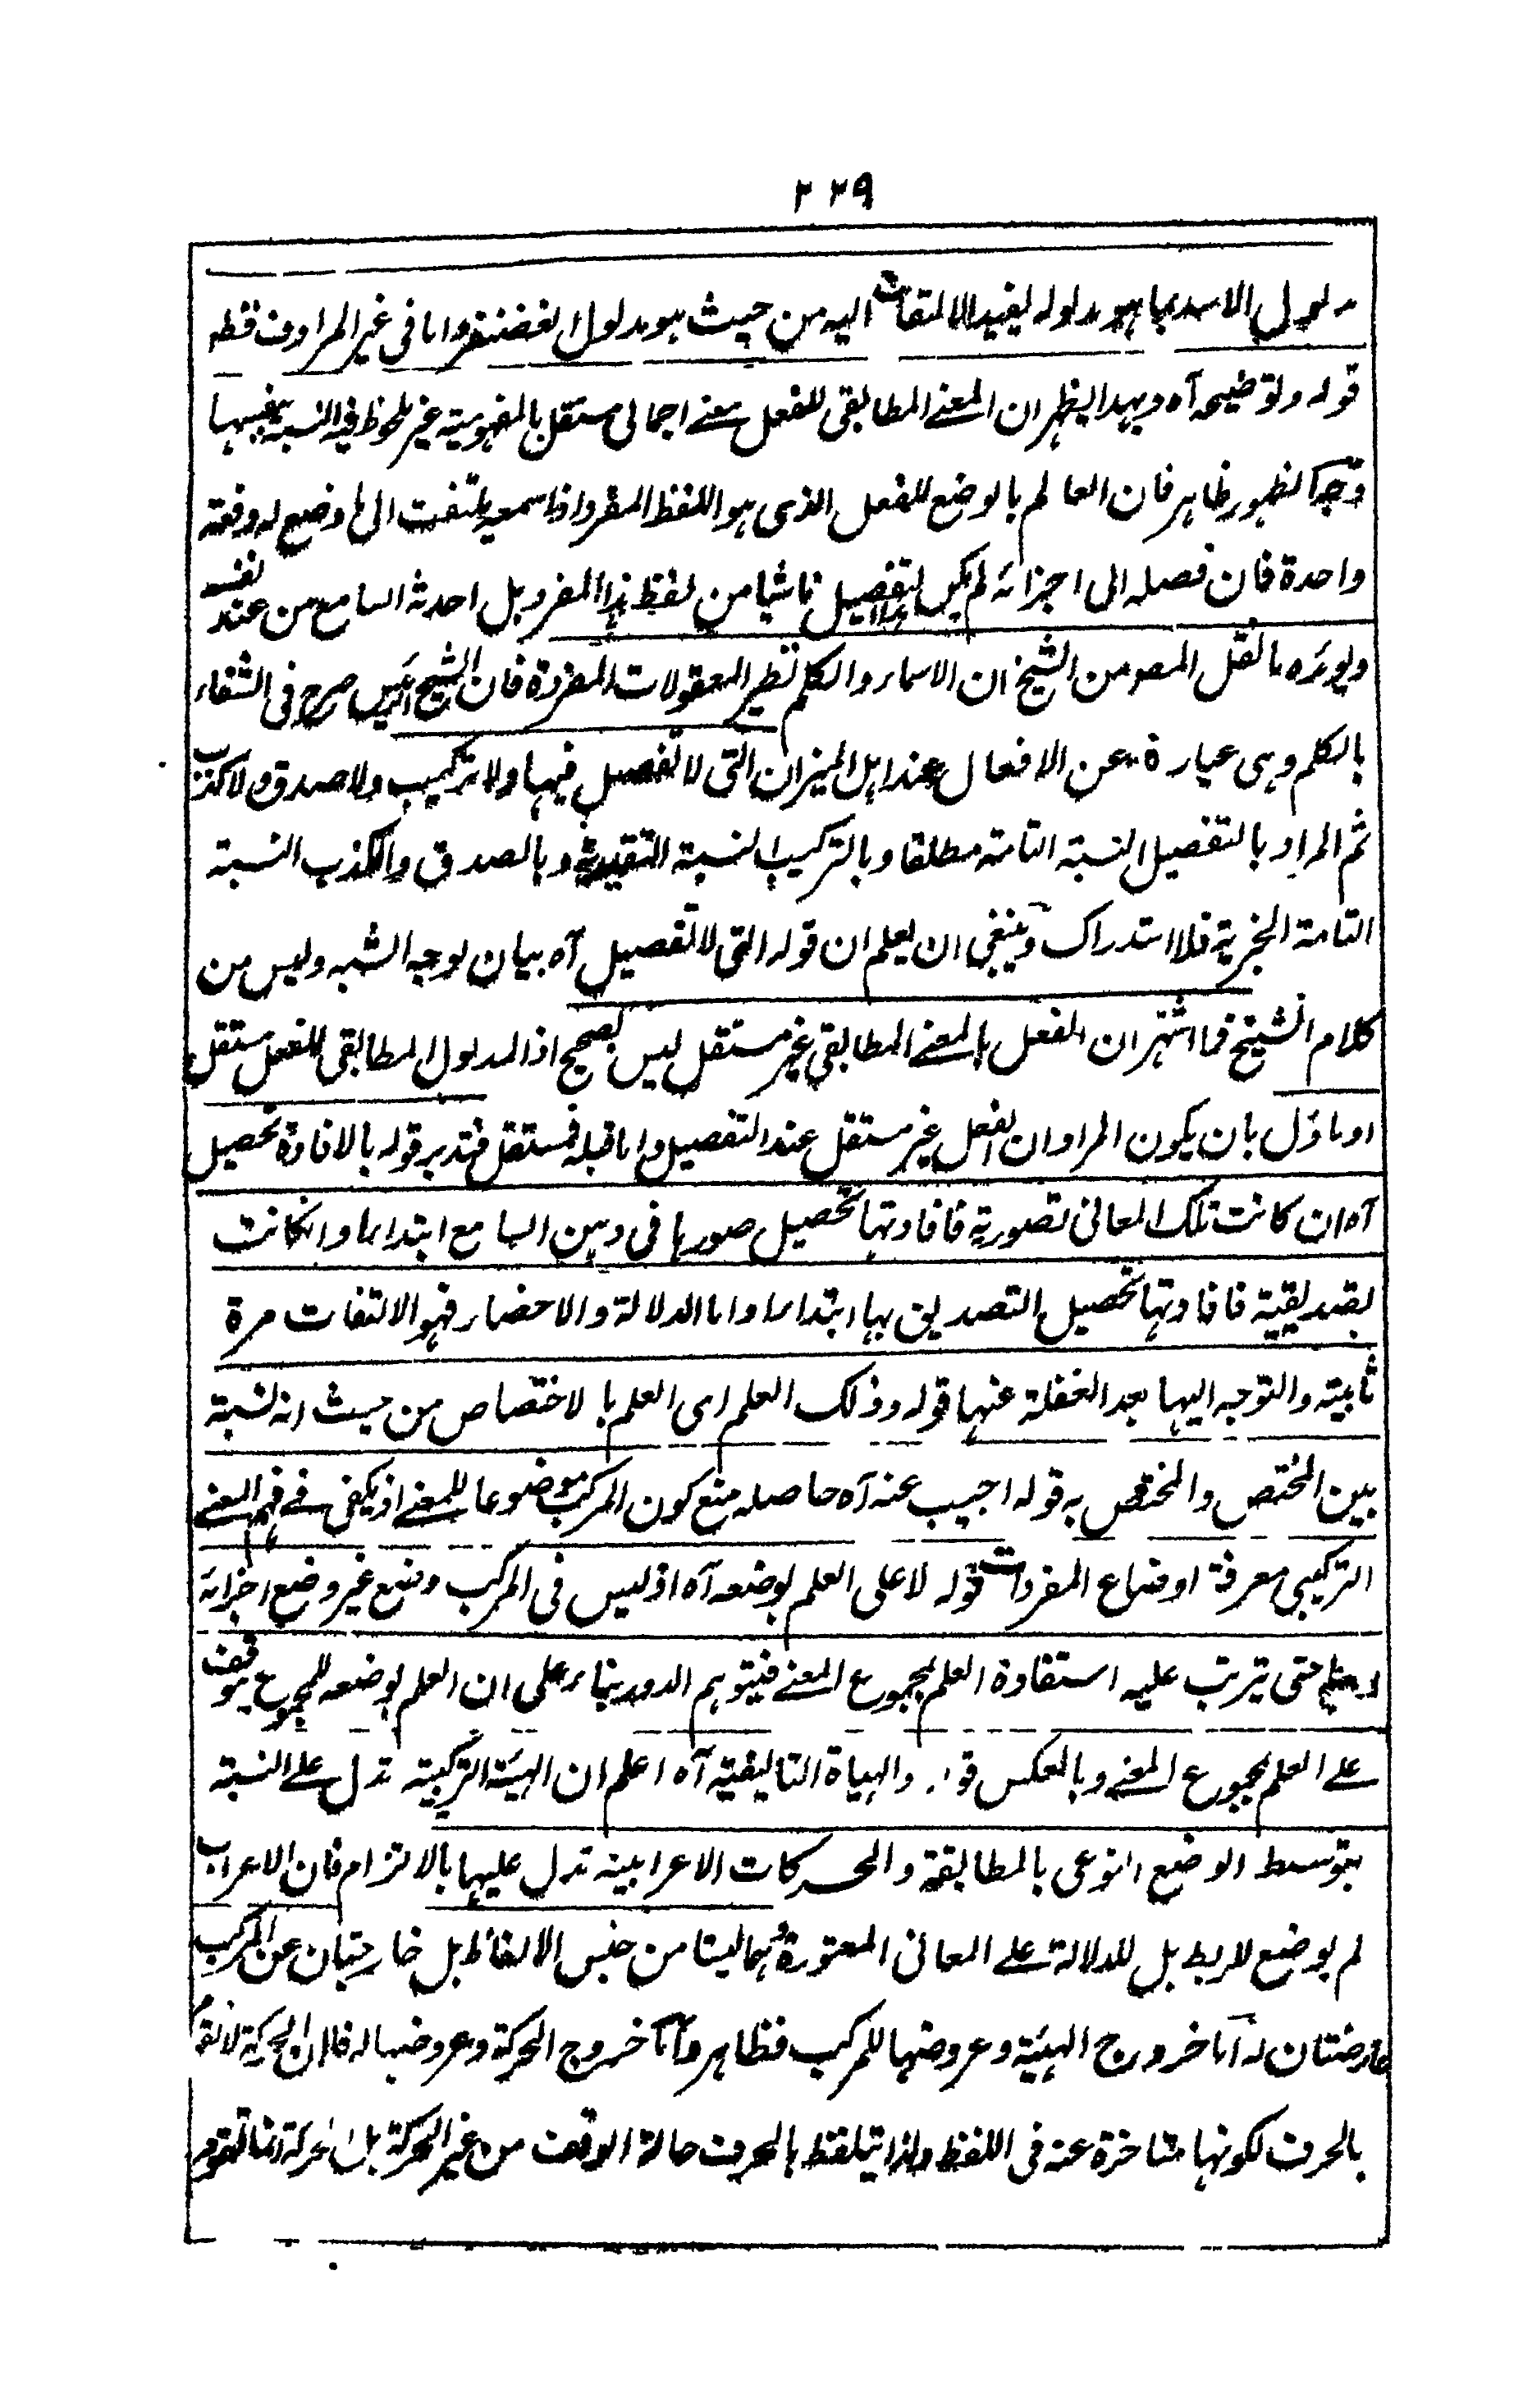 ٢٢٩
مدلول الاسد بما هو مدلوله ليفيد الالتفات اليه من حيث هو مدلول الغضنفر واما فى غير المرادف فقط
قوله ولتوضيحه آه وبهذا يظهر ان المعنى المطابقى للفعل معنى اجمالى مستقل بالمفهومية غير ملحوظ فيه النسبة بنفسها
وجه الظهور ظاهر فان العالم بالوضع للفعل الذى هو اللفظ المفرد اذا سمعه يلتفت الى ما وضع له دفعة
واحدة فان فصله الى اجزائه لم يكن التفصيل ناشيا من لفظ هذا المفرد بل احدثه السامع من عند نفسه
ويؤيده ما نقل المص من الشيخ ان الاسماء والكلم نظير المعقولات المفردة فان الشيخ الرئيس صرح فى الشفاء
بالكلم وهى عبارة عن الافعال عند اهل الميزان التى لا تفصيل فيها ولا تركيب ولا صدق ولا كذب
ثم المراد بالتفصيل النسبة التامة مطلقا وبالتركيب النسبة التقييدية وبالصدق والكذب النسبة
التامة الخبرية فلا استدراك وينبغى ان يعلم ان قوله التى لا تفصيل آه بيان لوجه الشبه وليس من
كلام الشيخ فما اشتهر ان الفعل بالمعنى المطابقى غير مستقل ليس بصحيح اذ المدلول المطابقى للفعل مستقل
او ماؤل بان يكون المراد ان الفعل غير مستقل عند التفصيل واما قبله فمستقل فتدبر قوله بالافادة تحصيل
آه ان كانت تلك المعانى تصورية فافادتها تحصيل صورها فى ذهن السامع ابتداءا وانكانت
تصديقية فافادتها تحصيل التصديق بها ابتداءا واما الدلالة والاحضار فهو الالتفات مرة
ثانية والتوجه اليها بعد الغفلة عنها قوله وذلك العلم اى العلم بالاختصاص من حيث انه نسبة
بين المختص والمختص به قوله اجيب عنه آه حاصله منع كون المركب موضوعا للمعنى اذ يكفى فى فهم المعنى
التركيبى معرفة اوضاع المفردات قوله لا على العلم بوضعه آه اذ ليس فى المركب وضع غير وضع اجزائه
حتى يترتب عليه استفادة العلم بمجموع المعنى فيتوهم الدور بناء على ان العلم بوضعه للمجموع يتوقف
على العلم بمجموع المعنى وبالعكس قوله والهيأة التاليفية آه اعلم ان الهيئة التركيبية تدل على النسبة
بتوسط الوضع النوعى بالمطابقة والحركات الاعرابية تدل عليها بالالتزام فان الاعراب
لم يوضع للربط بل للدلالة على المعانى المعتورة وهما ليستا من جنس الالفاظ بل خارجتان عن المركب
عارضتان له اما خروج الهيئة وعروضها للمركب فظاهر واما خروج الحركة وعروضها له فلان الحركة لا تقوم
بالحرف لكونها متاخرة عنه فى اللفظ ولذا يتلفظ بالحرف حالة الوقف من غير الحركة بل الحركة انما تقوم